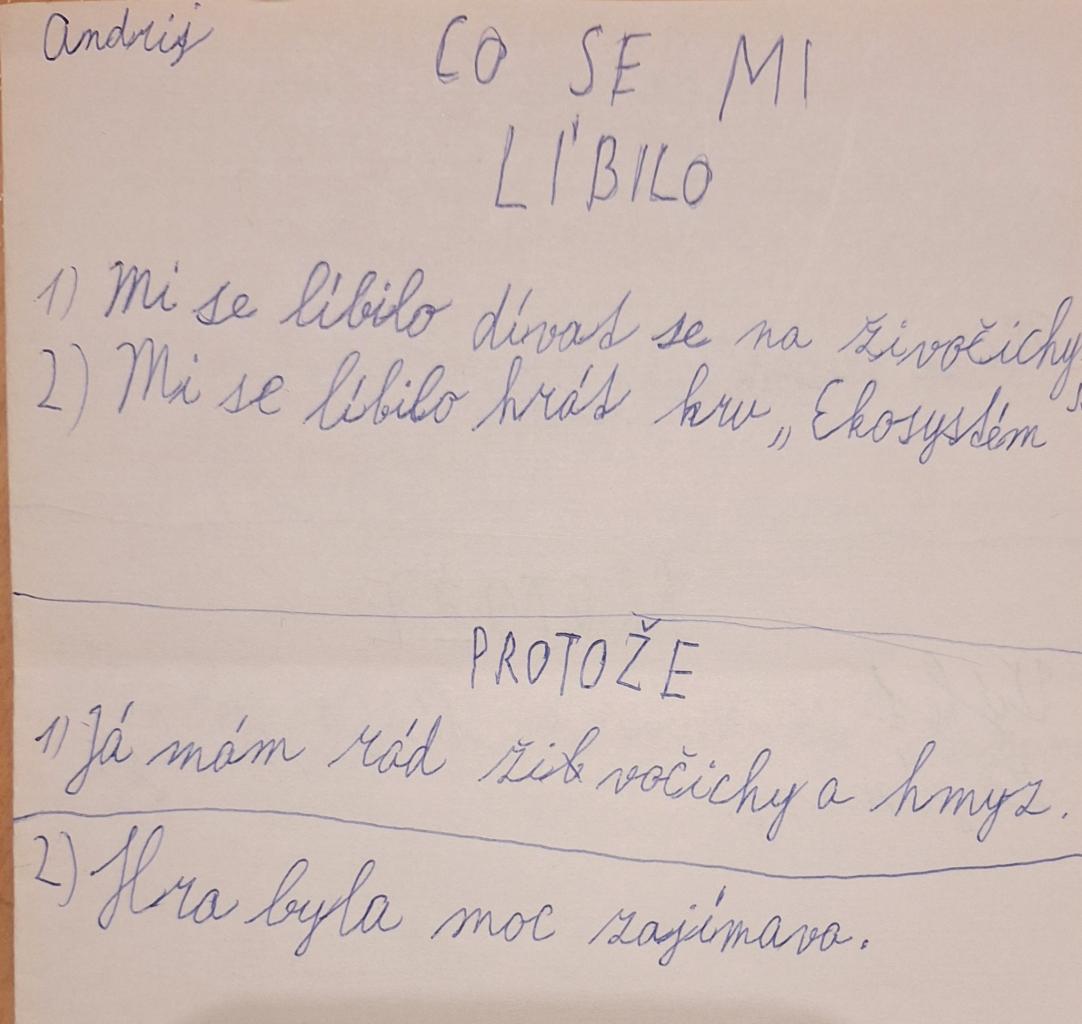 Andrij
CO SE MI
LÍBILO
1) Mi se líbilo dívat se na živočichy
2) Mi se líbilo hrát hru „Ekosystém“
PROTOŽE
1) Já mám rád živočichy a hmyz.
2) Hra byla moc zajímava.